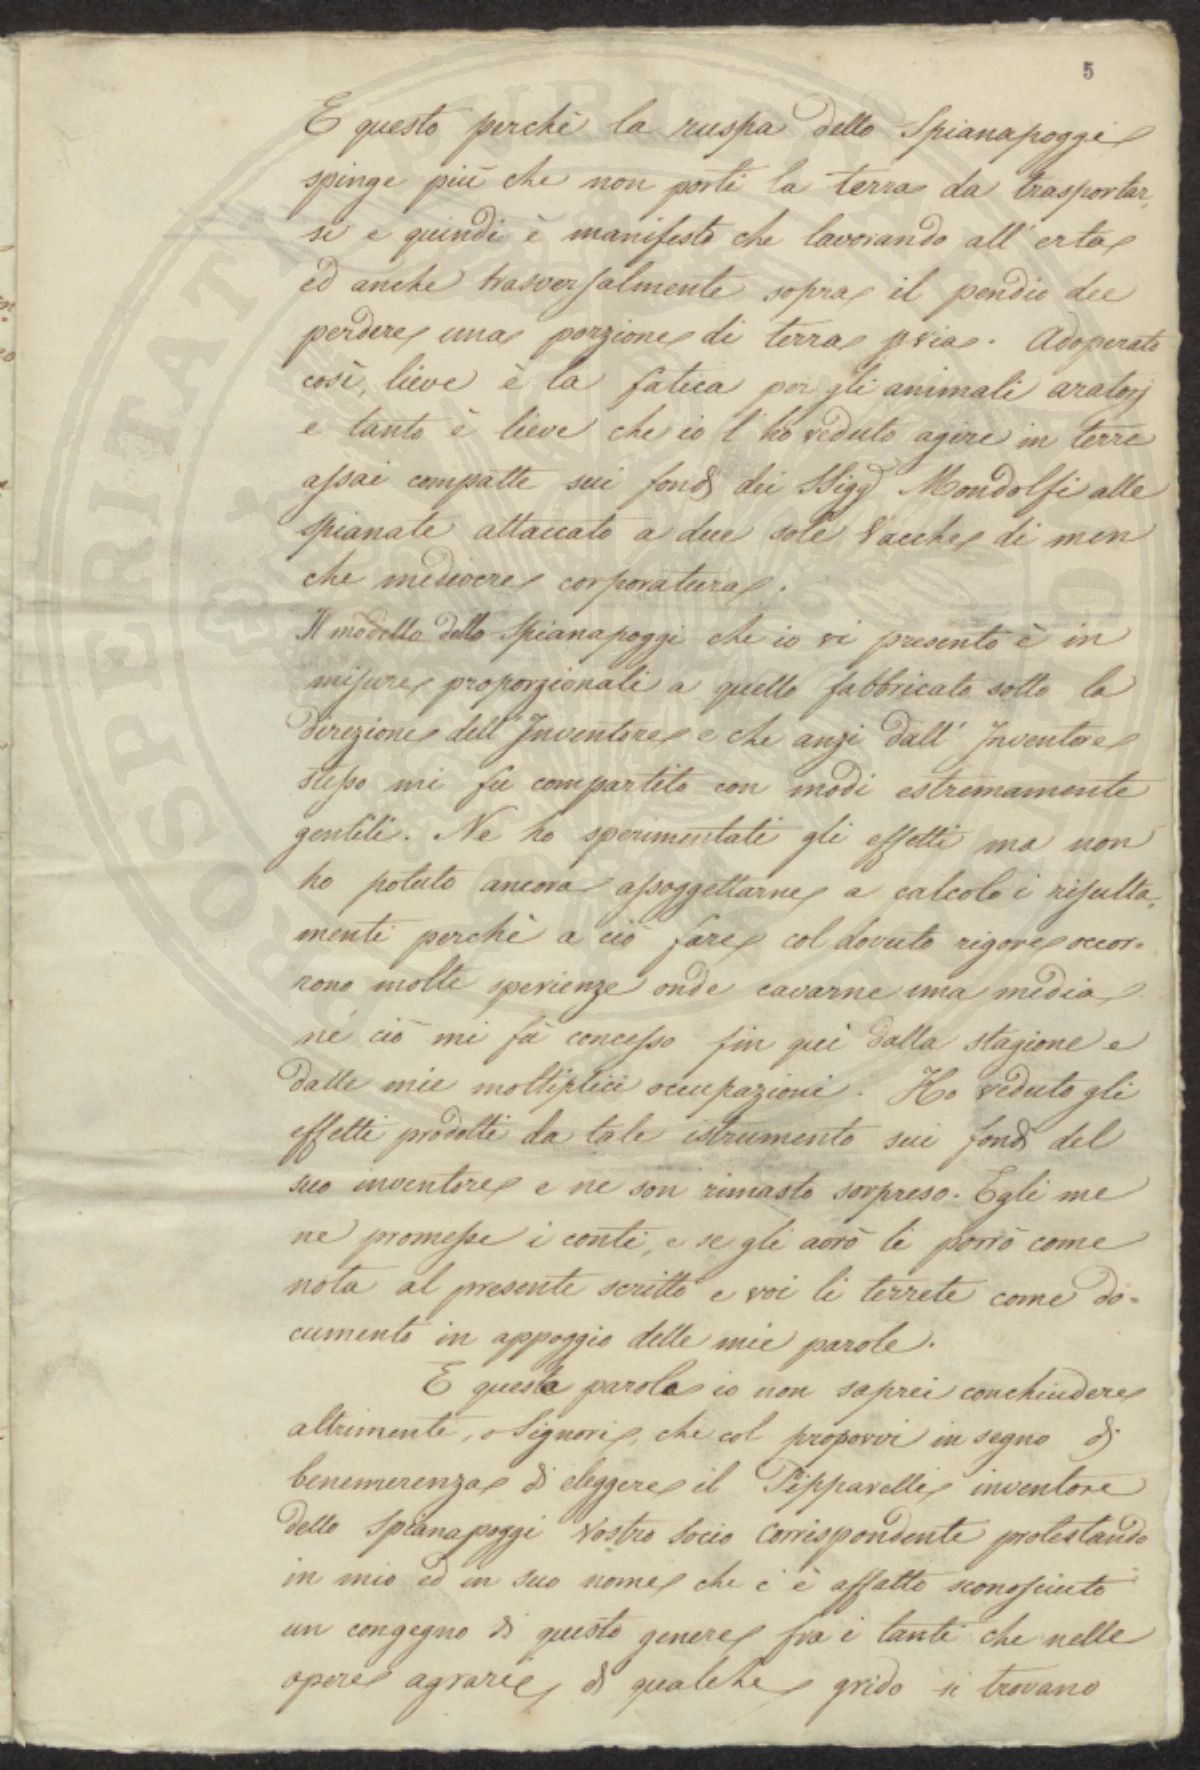 5
E questo perchè la ruspa dello Spianapoggi
spinge più che non porti la terra da trasportar-
si e quindi è manifesto che lavorando all'erta
ed anche trasversalmente sopra il pendio dee
perdere una porzione di terra pria. Adoperato
così, lieve è la fatica per gli animali aratorj
e tanto è lieve che io l'ho veduto agire in terre
assai compatte sui fondi dei SSigg.ri Mondolfi alle
Spianate attaccato a due sole Vacche di men
che mediocre corporatura.
Il modello dello Spianapoggi che io vi presento è in
misure proporzionali a quello fabbricato sotto la
direzione dell'Inventore e che anzi dall'Inventore
stesso mi fu compartito con modi estremamente
gentili. Ne ho sperimentati gli effetti ma non
ho potuto ancora assoggettarne a calcolo i risulta-
menti perchè a ciò fare col dovuto rigore occor-
rono molte sperienze onde cavarne una media
nè ciò mi fù concesso fin quì dalla stagione e
dalle mie moltiplici occupazioni. Ho veduto gli
effetti prodotti da tale istrumento sui fondi del
suo inventore e ne son rimasto sorpreso. Egli me
ne promesse i conti, e se gli avrò li porrò come
nota al presente scritto e voi li terrete come do-
cumento in appoggio delle mie parole.
E questa parola io non saprei conchiudere
altrimenti, o Signori, che col proporvi in segno di
benemerenza di eleggere il Pipparelli inventore
dello Spianapoggi Vostro Socio Corrispondente protestando
in mio ed in suo nome che c'è affatto sconosciuto
un congegno di questo genere fra i tanti che nelle
opere agrarie di qualche grido si trovano
PROSPERITATI PUBLICAE